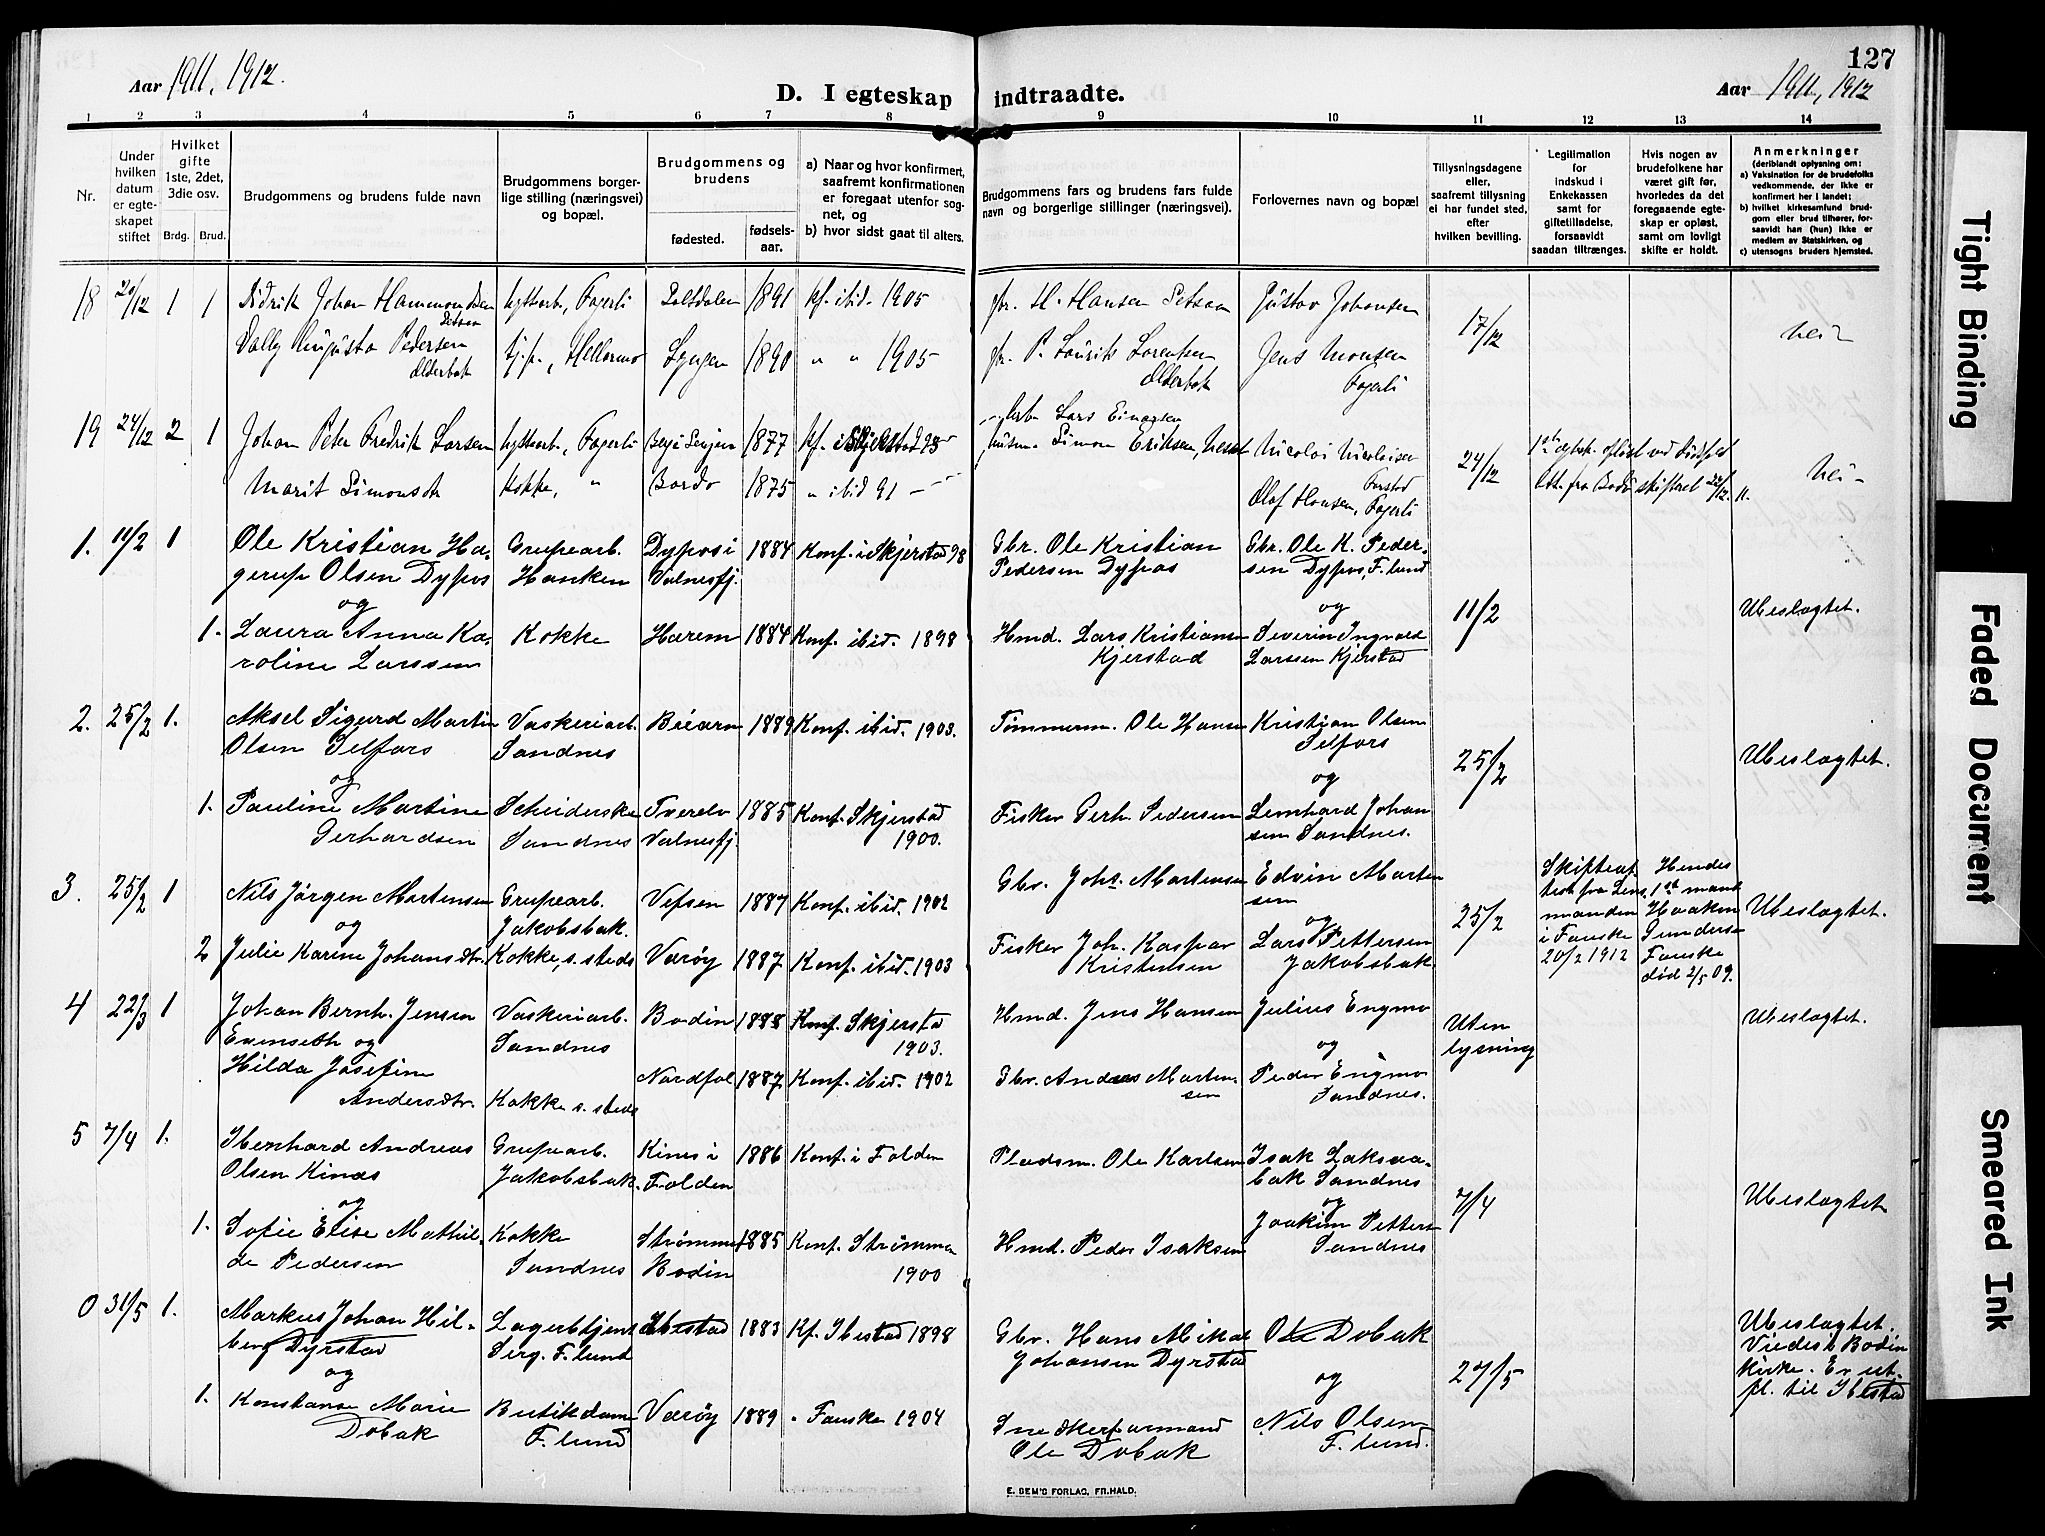 127
Aar 1911, 1912.
D. I egteskap indtraadte.
Aar 1911, 1912
1 2 3 4 5 6 7 8 9 10 11 12 13 14
Nr.
Under hvilken datum er egteskapet stiftet
Hvilket gifte 1ste, 2det, 3die osv.
Brdg. Brud.
Brudgommens og brudens fulde navn
Brudgommens borgerlige stilling (næringsvei) og bopæl.
Brudgommens og brudens
fødested.
fødselsaar.
a) Naar og hvor konfirmert, saafremt konfirmationen er foregaat utenfor sognet, og
b) hvor sidst gaat til alters.
Brudgommens fars og brudens fars fulde navn og borgerlige stillinger (næringsvei).
Forlovernes navn og bopæl
Tillysningsdagene eller, saafremt tillysning ei har fundet sted, efter hvilken bevilling.
Legitimation for indskud i Enkekassen samt for giftetilladelse, forsaavidt saadan tiltrænges.
Hvis nogen av brudefolkene har været gift før, hvorledes da det foregaaende egteskap er opløst, samt om lovligt skifte er holdt.
Anmerkninger
(deriblandt oplysning om:
a) Vaksination for de brudefolks vedkommende, der ikke er konfirmert her i landet;
b) hvilket kirkesamfund brudgom eller brud tilhører, forsaavidt han (hun) ikke er medlem av Statskirken, og
c) utensogns bruders hjemsted.
18 20/12 1 1 Didrik Johan Hammondsen hytteark, Fagerli Saltdalen 1891 kf. ibid. 1905 H. Hansen Setsaa Gustav Johansen 17/12 nei
Setsaa
Augusta Pedersen tj.p., Hellarmo Lyngen 1890 " " 1905 P. Laurits Lorentsen Jens Monsen
Alderbak Fagerli
19 24/12 2 1 Johan Peter Fredrik Larsen Fagerli 1877 kf. i Skjerstad Lars Einarsen
Simon Eriksen, Nicolai Nicolaisen 24/12 nei
Marit Simonsdtr Kokke, " Bardo 1875 " ibid 91 Olaf Hansen, Fagerli
1. 11/2 1 Ole Kristian Ha- Grubearb. Dypos i 1884 Konf. i Skjerstad 98 Gbr. Ole Kristian Gbr. Ole K. Peder-
gerup Olsen Dypos Hanken Valnesfj. Pedersen Dypos sen Dypos, F. lund
og og 11/2 Ubeslægtet.
1. Laura Anna Ka- Kokke Harem 1884 Konf. ibid. 1898 Hmd. Lars Kristiansen Severin Ingvald
roline Larssen Kjerstad Larssen Kjerstad
2. 25/2 1. Aksel Sigurd Martin Vaskeriarb. Beiarn 1889 Konf. ibid. 1903. Tømmerm. Ole Hansen Kristian Olsen
Olsen Selfors Sandnes Selfors
og og 25/2 Ubeslægtet.
1. Pauline Martine Scheiderske Tverelv 1885 Konf. Skjerstad Fisker Gerh. Pedersen Lenhard Johan
Gerhardsen Sandnes Valnesfj. 1900. sen Sandnes.
3. 25/2 1 Nils Jørgen Martensen Grubearb. Vefsen 1887 Konf. ibid. 1902 Gbr. Johs. Martensen Edvin Marten
og Jakobsbak. sen og 25/2 Ubeslægtet.
2 Julie Karine Johansdtr. Kokke, s. steds Værøy 1887 Konf. ibid. 1903 Fisker Joh. Kaspar Lars Pettersen
Kristensen Jakobsbak.
Skifteat
test fra Lens
manden
i Fauske
20/2 1912
Hendes
1ste mand
Haakon
Gundersen
Fauske
død 2/5 09.
4 22/3 1 Johan Bernh. Jensen Vaskeriarb. Bodin 1888 Konf. Skjersta Hmd. Jens Hansen Julius Engmo Uten Ubeslægtet.
Evenseth og Sandnes 1903. og lysning
Hilda Josefine Nordfol 1887 Konf. ibid. 1902 Gbr. Andreas Marten- Peder Engmo
Andersdtr. Kokke s. steds sen Sandnes.
5 7/4 1. Bernhard Andreas Grubearb. Kines i 1886 Konf. i Folden Pladsm. Ole Karlsen Isak Laksaa-
Olsen Kines Jakobsbak. Folden bak Sandnes
og og 7/4 Ubeslægtet
1. Sofie Elise Mathil- Kokke Strømmen 1885 Konf. Strømmen Hmd. Peder Isaksen Joakim Petters
de Pedersen Sandnes Bodin 1900 Sandnes
0 31/5 1. Markus Johan Hil- Ibestad 1883 Kf. Ibestad 1898 Gbr. Hans Mikal Ole Dobak Ubeslægtet.
berg Dyrstad Serg. F. lund Johansen Dyrstad Viedes i Bodin
og og 27/5 Kirke. Er ut-
fl. til Ibestad
1. Konstanse Marie Butikdame Værøy 1889 " Fauske 1904 Snedkerformand Nils Olsen
Dobak F. lund Ole Dobak F. lund.
E. SEM'S FORLAG, FR.HALD.
Tight Binding
Faded Document
Smeared Ink